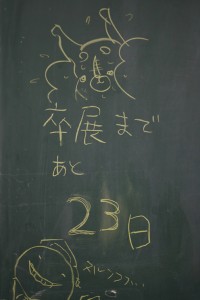 卒展まで
あと
23日